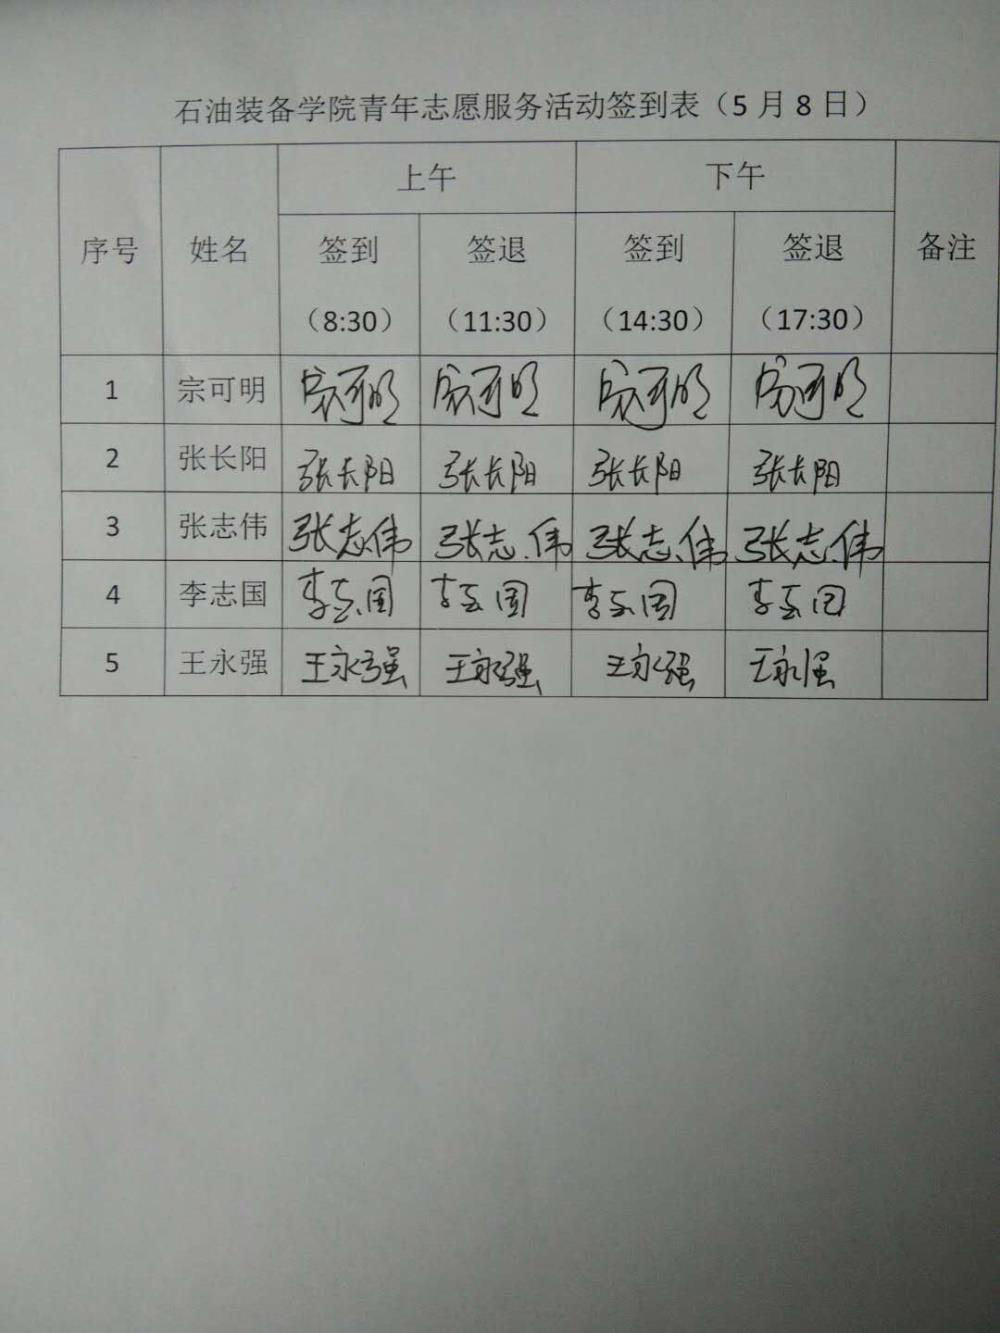 石油装备学院青年志愿服务活动签到表（5月8日）
序号 姓名 上午 下午 备注
签到 签退 签到 签退
（8:30） （11:30） （14:30） （17:30）
1 宗可明 宗可明 宗可明 宗可明 宗可明
2 张长阳 张长阳 张长阳 张长阳 张长阳
3 张志伟 张志伟 张志伟 张志伟 张志伟
4 李志国 李志国 李志国 李志国 李志国
5 王永强 王永强 王永强 王永强 王永强